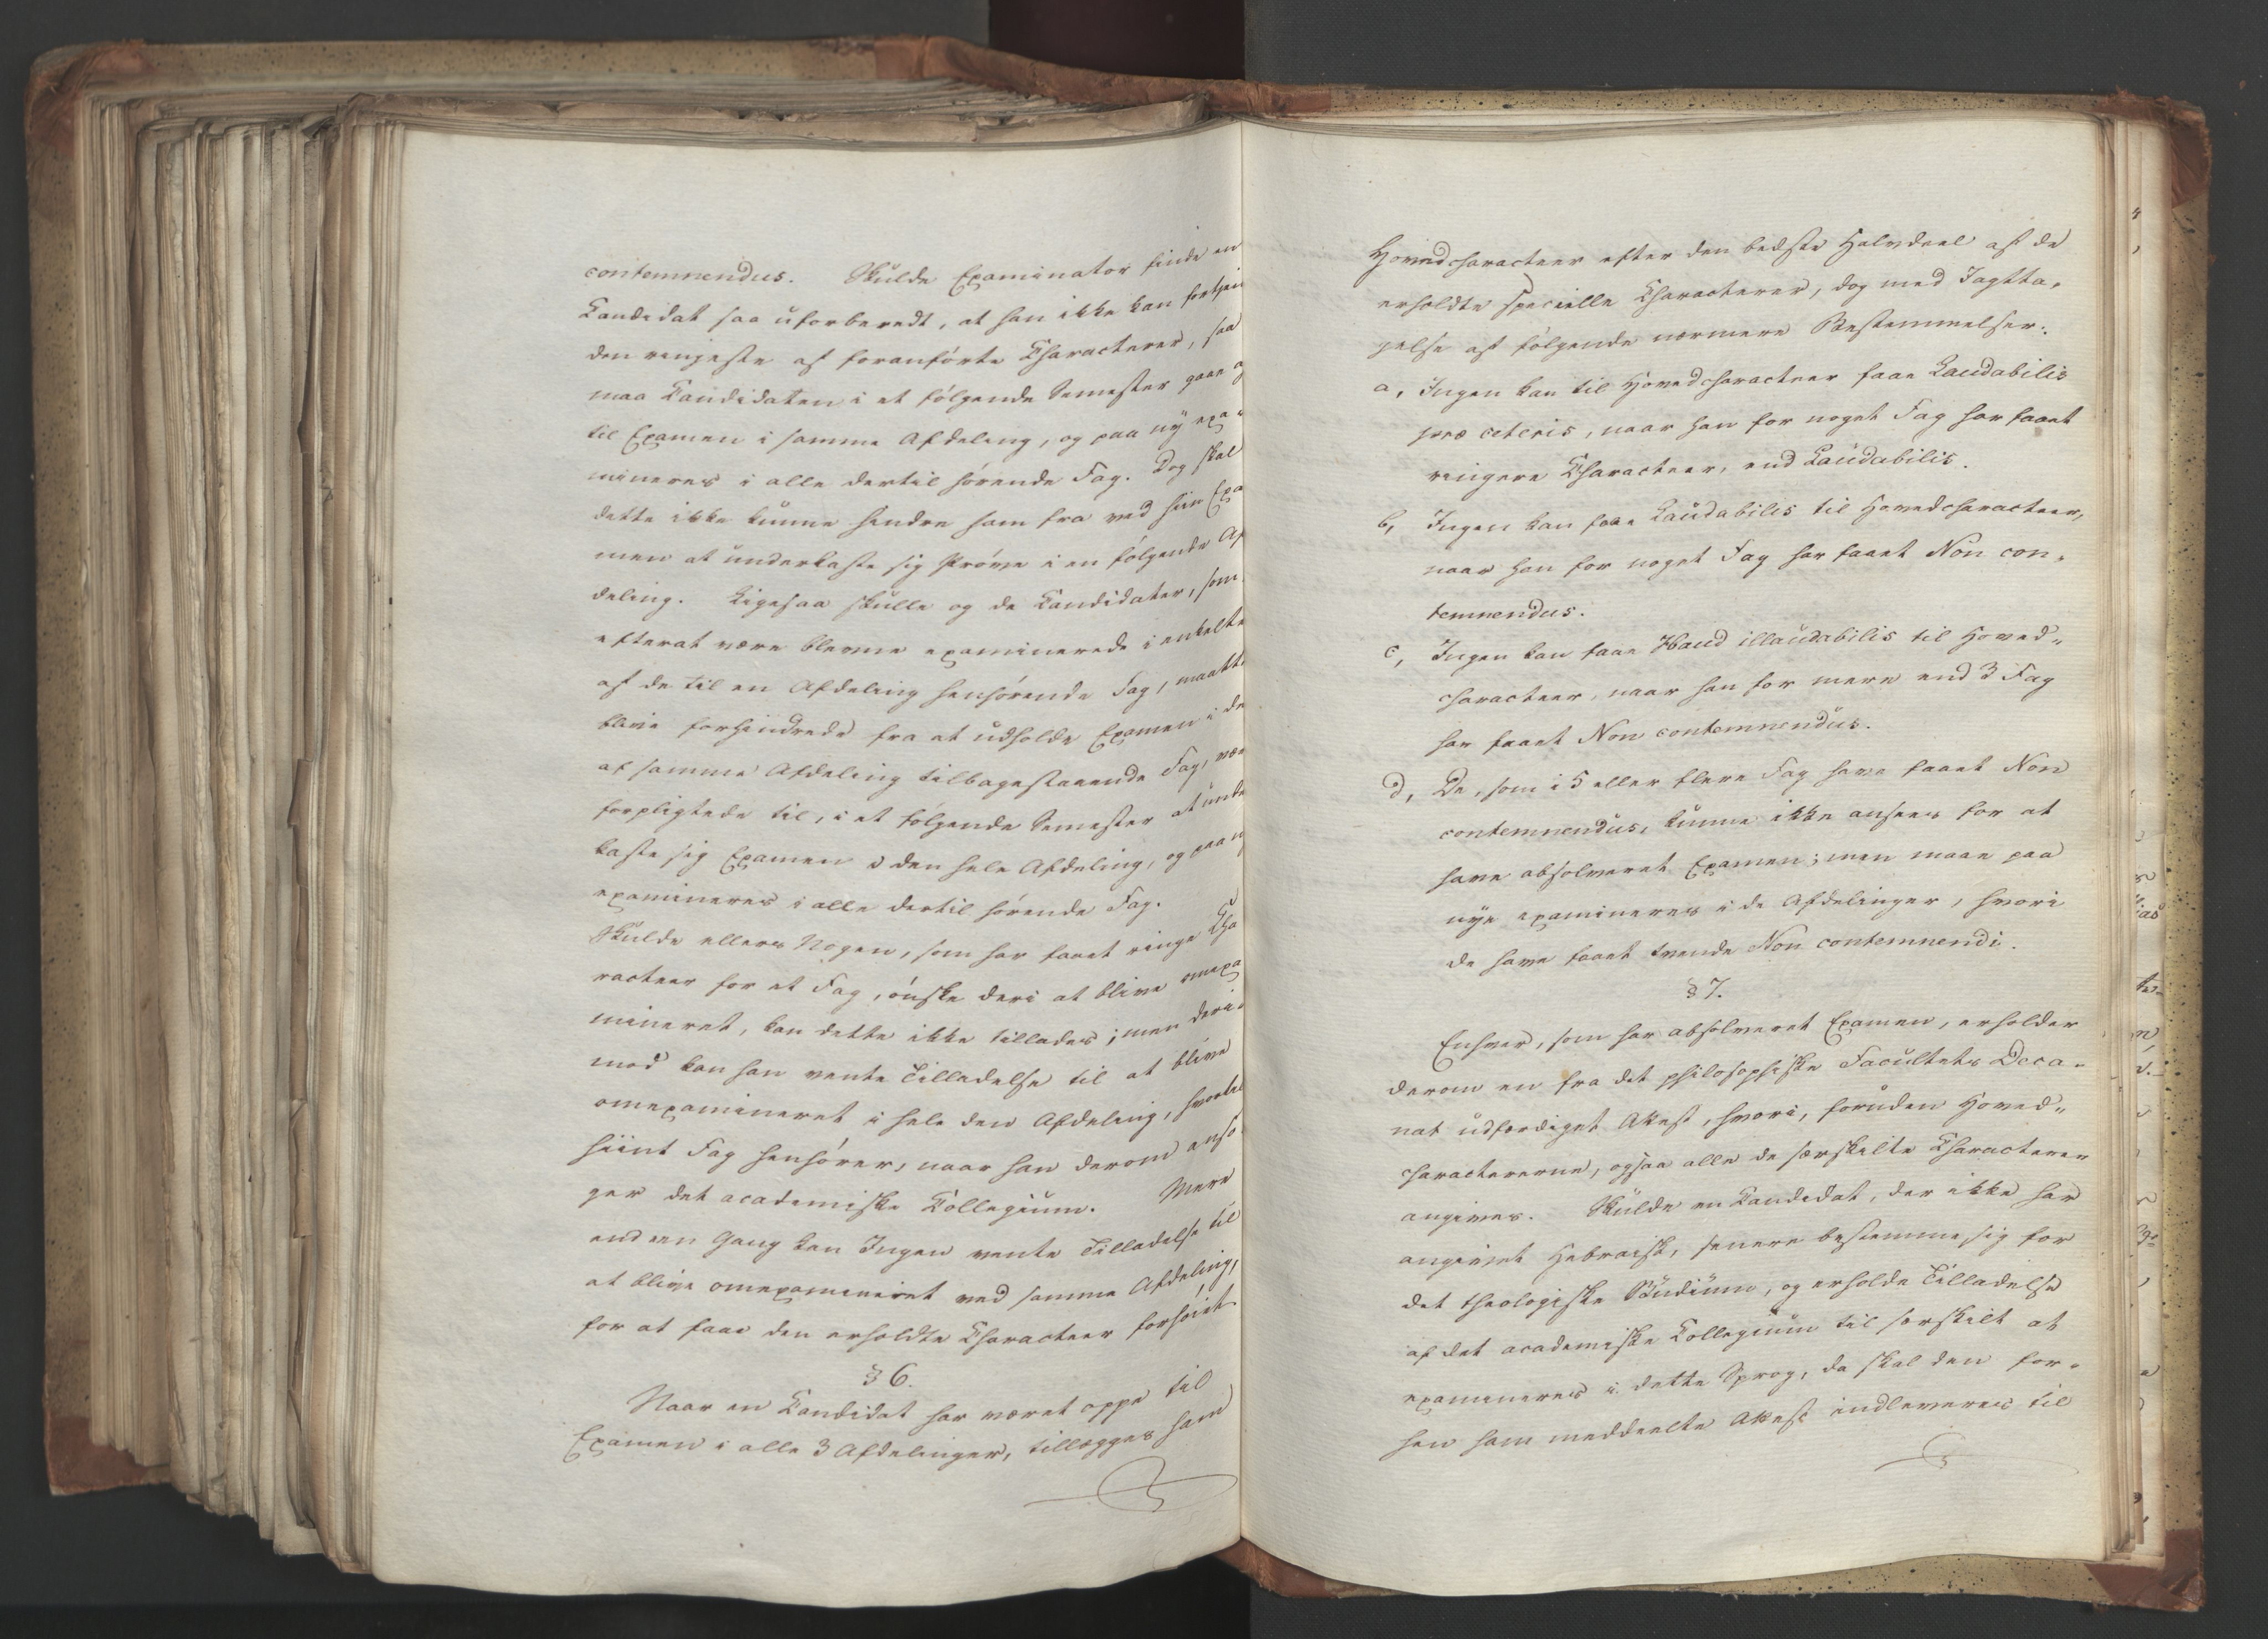 contemnendus. Skulde Examinator finde en
Candidat saa uforberedt, at han ikke kan fortjen
den ringeste af foranførte Characterer, saa
maa Candidaten i et følgende Semester gaae o
til Examen i samme Afdeling, og paa ny exa-
mineres i alle dertil hørende Fag. Dog skal
dette ikke kunne hindre ham fra ved hiin Exa
men at underkaste sig Prøve i en følgende Af
deling. Ligesaa skulle og de Candidater, som
efterat være blevne examinerede i enkelte
af de til en Afdeling henhørende Fag, maatte
blive forhindrede fra at udholde Examen i de
af samme Afdeling tilbagestaaende Fag, vær
forpligtede til, i et følgende Semester at unde
kaste sig Examen i den hele Afdeling, og paa n
examineres i alle dertil hørende Fag.
Skulde ellers Nogen, som har faaet ringe Cha
racteer for et Fag, ønske deri at blive omexa
mineret, kan dette ikke tillades; men deri-
mod kan han vente Tilladelse til at blive
omexamineret i hele den Afdeling, hvortil
hiint Fag henhører, naar han derom ansø
ger det academiske Collegium. Mere
end een Gang kan Ingen vente Tilladelse til
at blive omexamineret ved samme Afdeling,
for at faae den erholdte Characteer forhøiet
§ 6.
Naar en Candidat har været oppe til
Examen i alle 3 Afdelinger, tillægges ham
Hovedcharacteer efter den bedste Halvdeel af de
erholdte specielle Characterer, dog med Iagtta-
gelse af følgende nærmere Bestemmelser:
a, Ingen kan til Hovedcharacteer faae Laudabilis
præ ceteris, naar han for noget Fag har faaet
ringere Characteer, end Laudabilis.
b, Ingen kan faae Laudabilis til Hovedcharacteer,
naar han for noget Fag har faaet Non con-
temnendus.
c, Ingen kan faae Haud illaudabilis til Hoved-
characteer, naar han for mere end 3 Fag
har faaet Non contemnendus.
d, De, som i 5 eller flere Fag have faaet Non
contemnendus, kunne ikke ansees for at
have absolveret Examen; men maae paa
nye examineres i de Afdelinger, hvori
de have faaet tvende Non contemnendi.
§ 7.
Enhver, som har absolveret Examen, erholder
derom en fra det philosophiske Facultets Deca-
nat udfærdiget Attest, hvori, foruden Hoved-
characteren, ogsaa alle de særskilte Characterer
angives. Skulde en Candidat, der ikke har
angivet Hebraisk, senere bestemme sig for
det theologiske Studium, og erholde Tilladelse
af det academiske Collegium til særskilt at
examineres i dette Sprog, da skal den for-
hen ham meddeelte Attest indleveres til